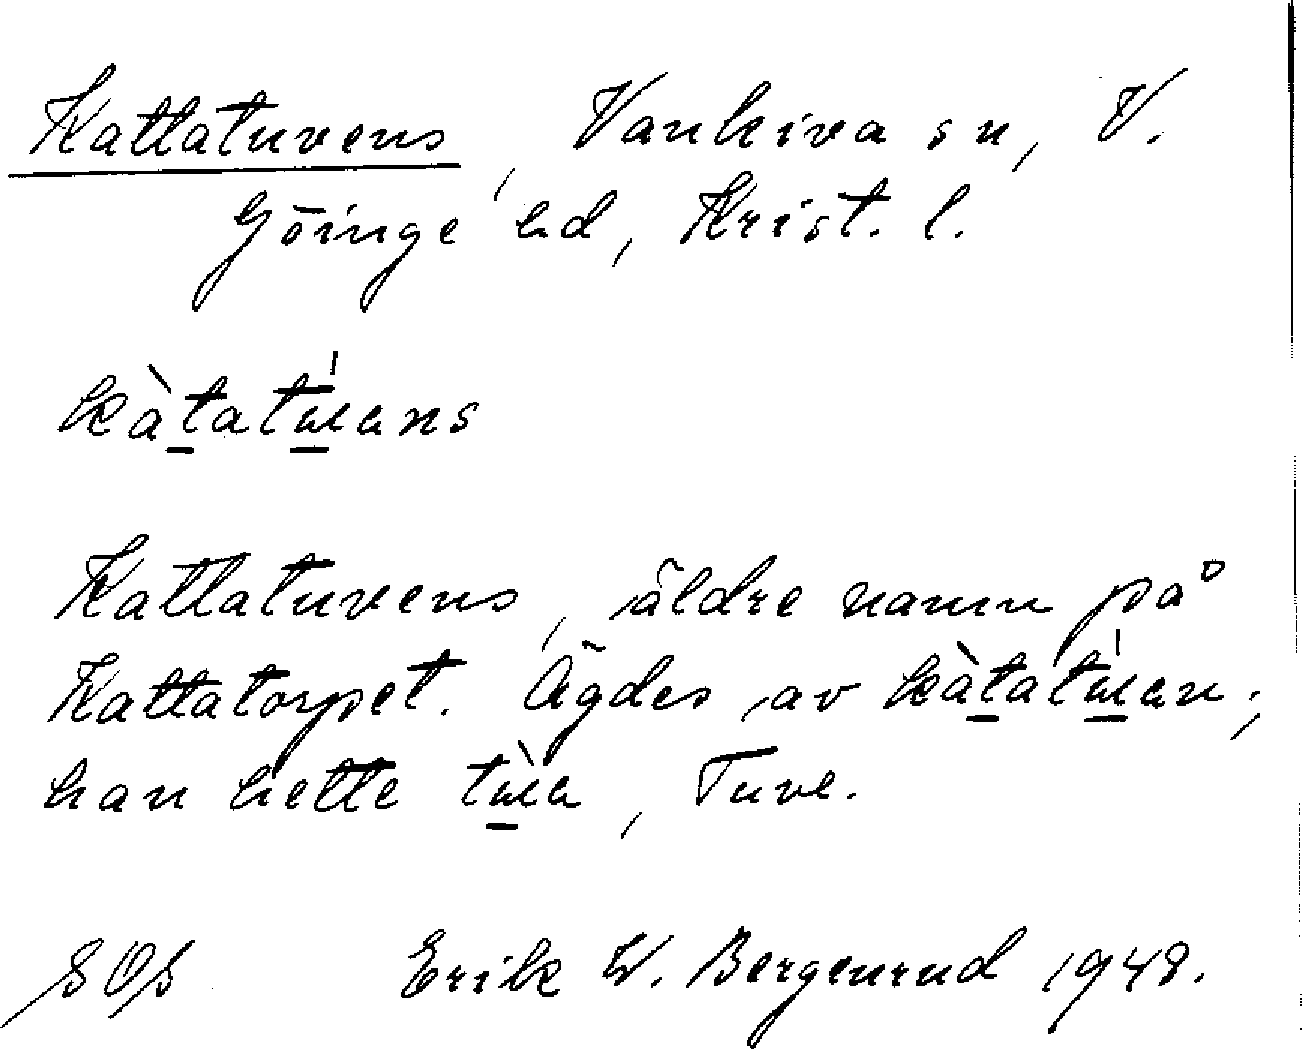 Kattatuvens, Vankiva sn, V.
Göinge hd, Krist. l.
kàtatúans
Kattatuvens, äldre namn på
Kattatorpet. Ägdes av kàtatúan;
han hette tùa, Tuve.
SOS Erik W. Bergenrud 1948.